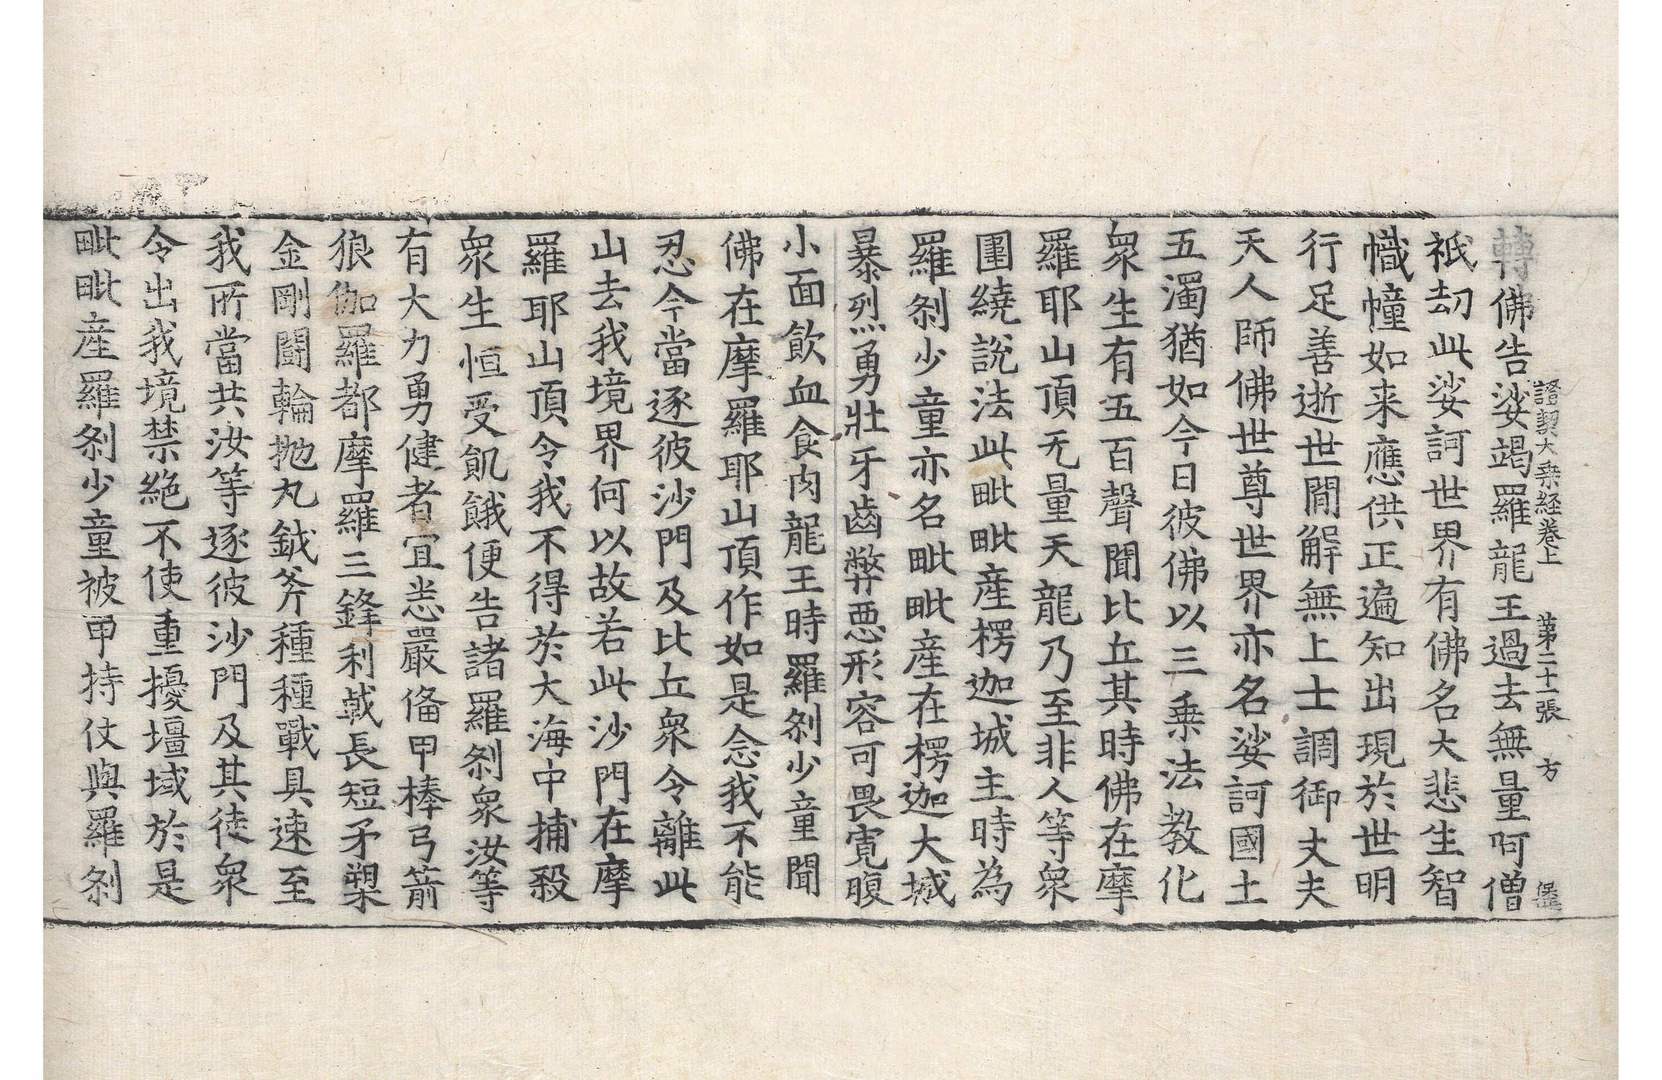 證契大乗経卷上 第二十一張 方
轉佛告娑竭羅龍王過去無量阿僧
祇劫此娑訶世界有佛名大悲生智
幟幢如来應供正遍知出現於世明
行足善逝世閒解無上士調御丈夫
天人師佛世尊世界亦名娑訶國土
五濁猶如今日彼佛以三乗法教化
衆生有五百聲聞比丘其時佛在摩
羅耶山頂无量天龍乃至非人等衆
圍繞說法此毗毗產楞迦城主時為
羅剎少童亦名毗毗產在楞迦大城
暴烈勇壯牙齒弊惡形容可畏寛腹
小面飲血食肉龍王時羅剎少童聞
佛在摩羅耶山頂作如是念我不能
忍今當逐彼沙門及比丘衆令離此
山去我境界何以故若此沙門在摩
羅耶山頂令我不得於大海中捕殺
衆生恒受飢餓便告諸羅剎衆汝等
有大力勇健者宜悉嚴俻甲棒弓箭
狼伽羅都摩羅三鋒利戟長短矛槊
金剛鬪輪拋丸鉞斧種種戰具速至
我所當共汝等逐彼沙門及其徒衆
令出我境禁絶不使重擾壃域於是
毗毗產羅剎少童被甲持仗與羅剎